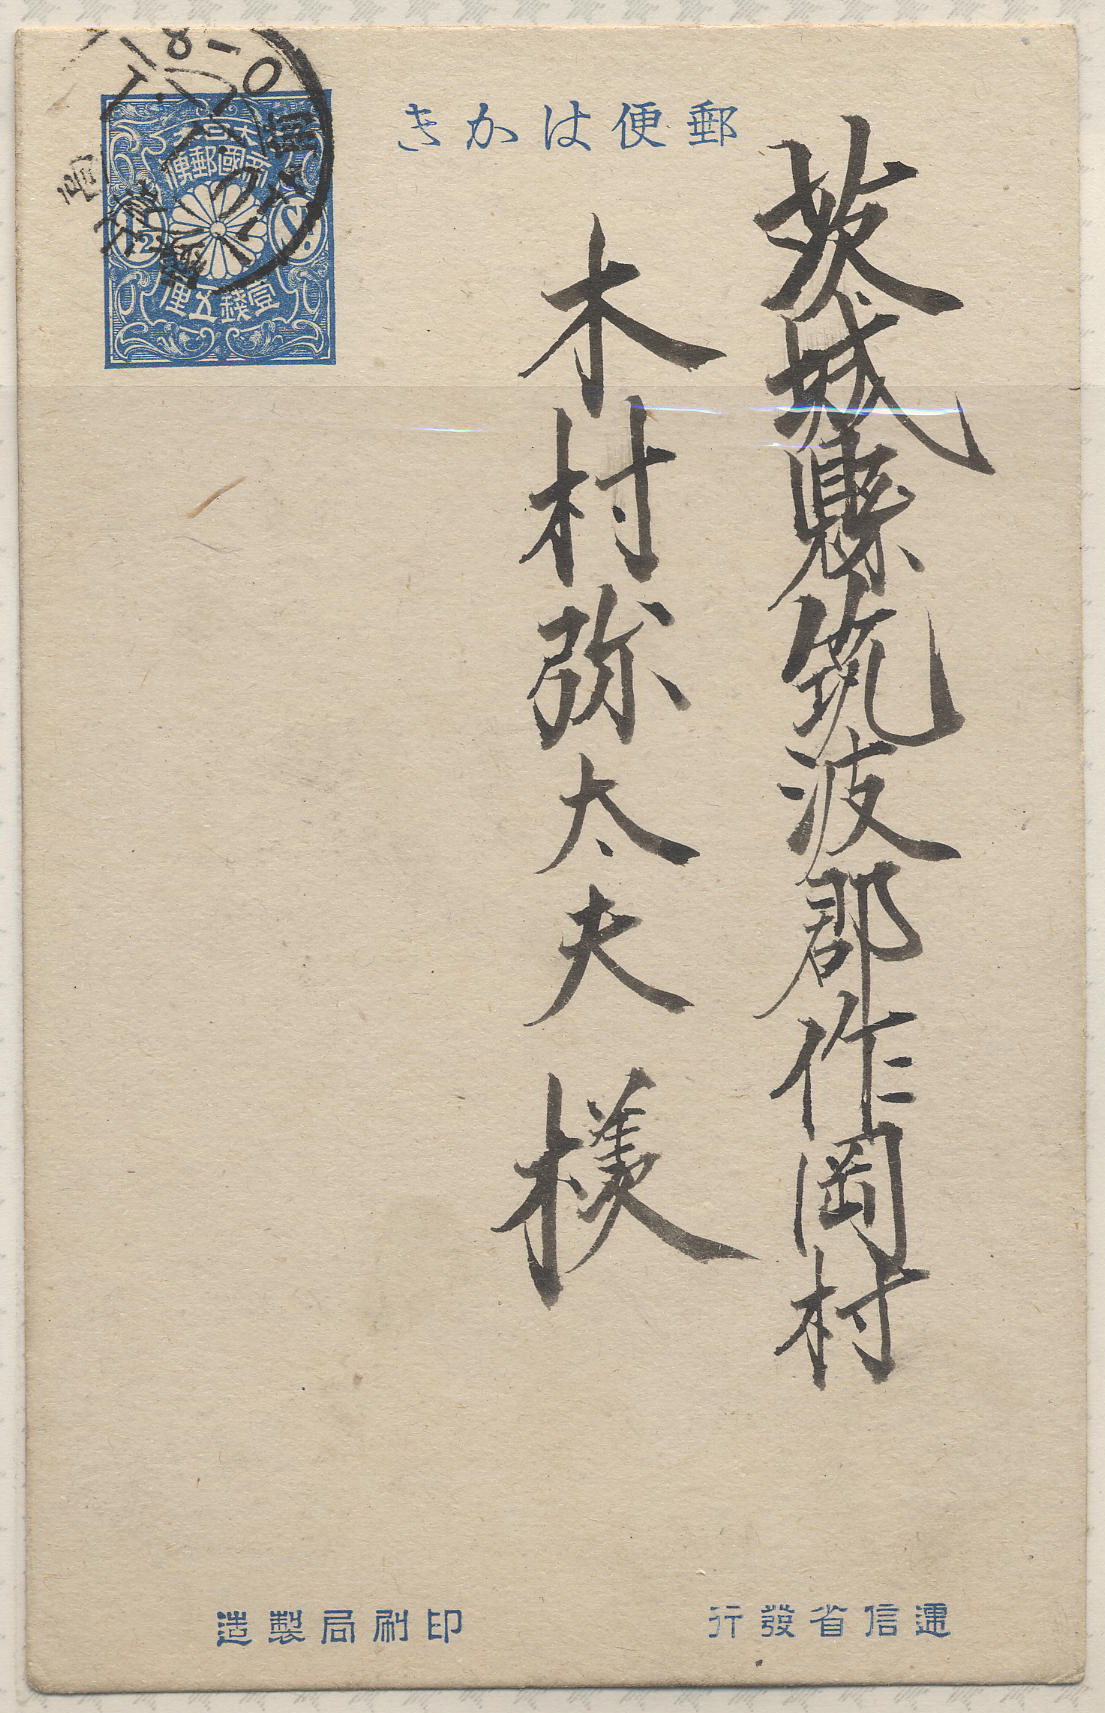 郵便はかき
大日本
帝國郵便
1½
Sn.
壹錢五厘
茨城縣筑波郡作岡村
木村弥太夫様
遞信省發行
印刷局製造